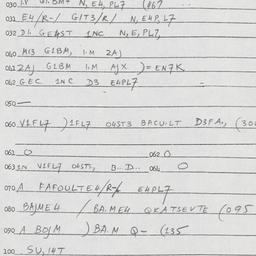 031 E4/R-/ GIT3/R/ N, E4P, L7
032 D.I. GE4ST 1NC N, E, PL7,
040 M13 G1BM, 1.M 2AJ
041 2AJ G1BM 1.M AJX )= EN7K
042 GEC 1NC D3 E4PL7
050 —
060 V1FL7 )1FL7 04ST3 BACULT D3FA,
061 O 062 O
063 V1FL7 04ST1, B... D... 064 O
070 A FAFOULTE4/R-/ E4PL7
080 BAJME4 / BA.ME4 QKATSEVTE (095
090 A BOJM ) BA.M Q- (135
100 SU, 14T